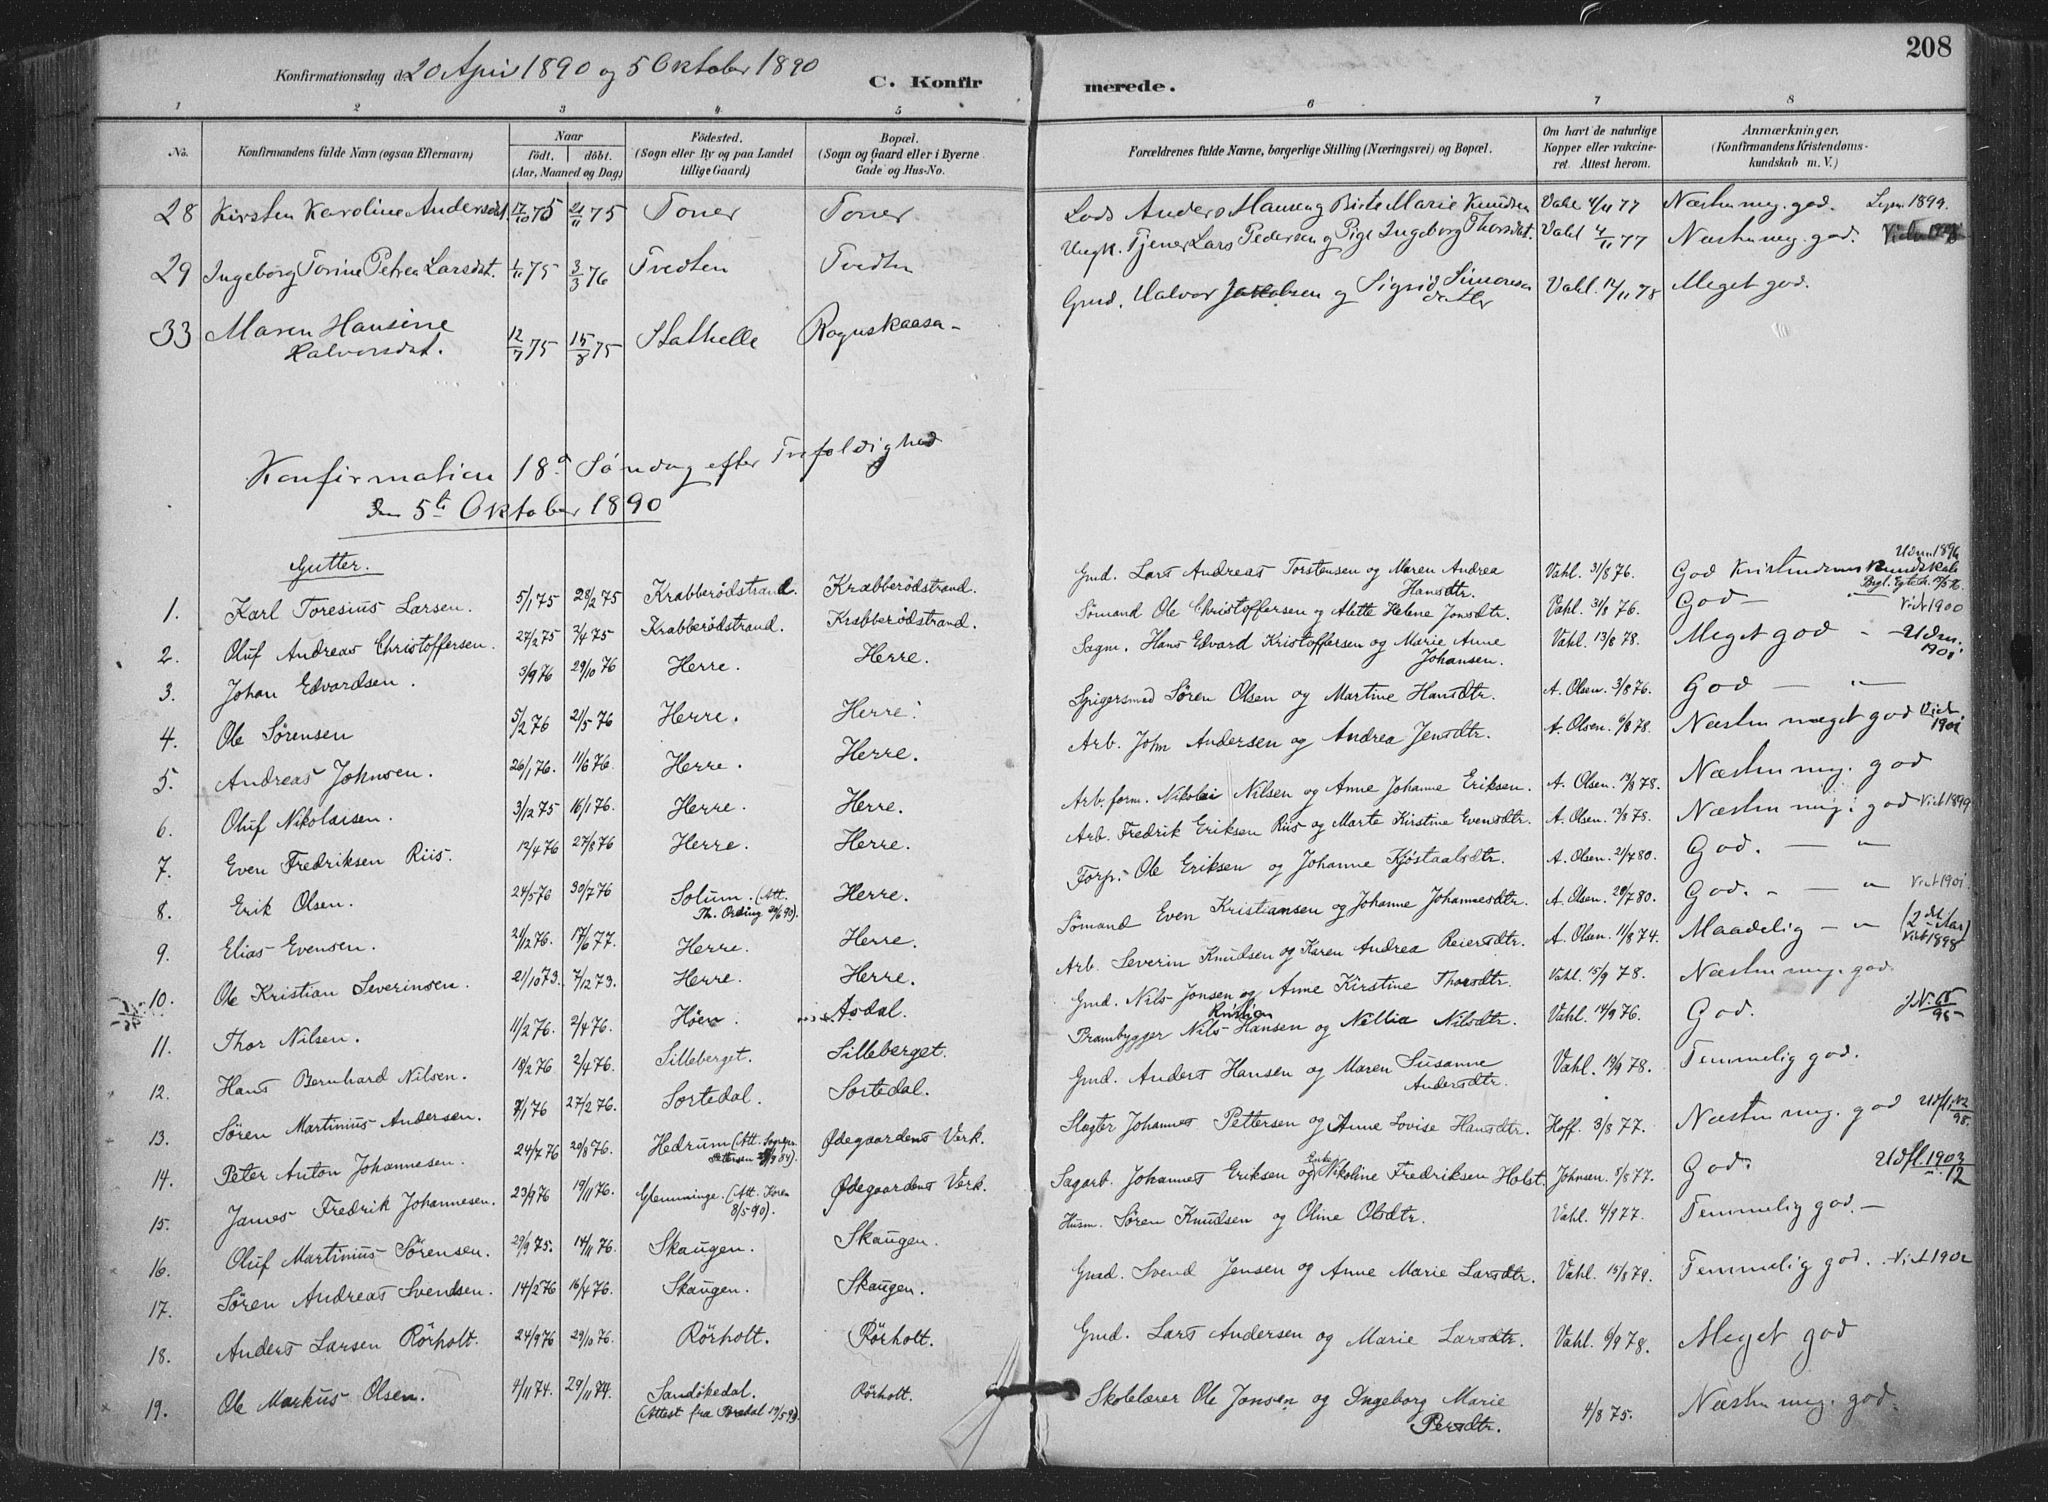 208
Konfirmationsdag d. 20 April 1890 og 5 Oktober 1890
C. Konfirmerede.
1 2 3 4 5 6 7 8
No. Konfirmandens fulde Navn (ogsaa Efternavn) Naar født. døbt. (Aar, Maaned og Dag) Fødested. (Sogn eller By og paa Landet tillige Gaard) Bopæl. (Sogn og Gaard eller i Byerne Gade og Hus-No. Forældrenes fulde Navne, borgerlige Stilling (Næringsvei) og Bopæl. Om havt de naturlige Kopper eller vaccineret. Attest herom. Anmærkninger. (Konfirmandens Kristendomskundskab m. V.)
28 Kirsten Karoline Andersdat. 17/10 75 21/11 75 Toner Toner Lods Anders Hansen og Birte Marie Knudsen Vahl 4/11 77 Næsten meg. god. 1899.
29 Ingeborg Torine Petrea Larsdat. 1/11 75 3/3 76 Tvedten Tvedten Ungk. Tjener Lars Pedersen og Pige Ingeborg Thorsdat. Vahl 4/11 77 Næsten meg. god.
33 Maren Hansine Halvorsdat. 12/7 75 15/8 75 Stathelle Rognskaasa Gmd. Halvor Jakobsen og Sigrid Simonsdatter Vahl. 12/11 78 Meget god.
Konfirmation 18d Søndag efter Trefoldighed
den 5te Oktober 1890
Gutter.
1. Karl Toresius Larsen. 5/1 75 28/2 75 Krabberødstrand. Krabberødstrand. Gmd. Lars Andreas Torstensen og Maren Andrea Hansdtr. Vahl. 31/8 76. God Kristendoms Kundskab Udm. 1896
2. Oluf Andreas Christoffersen. 27/2 75 3/4 75 Krabberødstrand. Krabberødstrand. Sømand Ole Christoffersen og Alette Helene Jonsdtr. Vahl. 31/8 76. God — " Vict 1900
3. Johan Edvardsen. 3/9 76 29/10 76 Herre. Herre. Sagm. Hans Edvard Kristoffersen og Marie Anne Johansen. Vahl. 13/8 78. Meget god - Udm. 1901
4. Ole Sørensen 5/2 76 21/5 76 Herre. Herre. Spigersmed Søren Olsen og Martine Hansdtr. A. Olsen. 3/8 76. God — "
5. Andreas Johnsen. 26/1 76. 11/6 76. Herre. Herre. Arb. John Andersen og Andrea Jensdtr. A. Olsen. 6/8 78. Næsten meget god Vict. 1901
6. Oluf Nikolaisen. 3/12 75 16/1 76. Herre. Herre. Arb. form. Nikolai Nilsen og Anne Johanne Eriksen. A. Olsen. 13/8 78. Næsten meg. god
7. Even Fredriksen Riis. 12/4 76 27/8 76 Herre. Herre. Arb. Fredrik Eriksen Riis og Marte Kirstine Evensdtr. A. Olsen. 13/8 78. Næsten meg. god Vict 1899
8. Erik Olsen. 24/5 76 30/7 76 Solum. (Att. Th. Ording 20/6 90). Herre. Forp. Ole Eriksen og Johanne Kjøstaalsdtr. A. Olsen. 21/7 80. God. — "
9. Elias Evensen. 21/12 76. 17/6 77. Herre. Herre. Sømand Even Kristiansen og Johanne Johannesdtr. A. Olsen. 20/7 80. God. - — " Vict 1901
10. Ole Kristian Severinsen. 21/10 73. 7/12 73. Herre. Herre. Arb. Severin Knudsen og Karen Andrea Reiersdtr. A. Olsen. 11/8 74. Maadelig - " (2det Aar) Vict 1898
11. Thor Nilsen. 11/2 76. 2/4 76. Høen. Asdal. Gmd. Nils Jonsen og Anne Kirstine Thorsdtr. Vahl. 15/9 78. Næsten meg. god.
12. Hans Bernhard Nilsen. 18/2 76 2/4 76. Silleberget. Silleberget. Brambygger Nils Kristian Hansen og Nellia Nilsdtr. Vahl. 14/9 76. God.
13. Søren Martinius Andersen. 7/1 76 27/2 76. Sortedal. Sortedal. Gmd. Anders Hansen og Maren Susanne Andersdtr. Vahl. 19/9 78. Temmelig god.
14. Peter Anton Johannesen. 24/7 76 20/8 76. Hedrum (Att. Sognepr. Pettersen). Ødegaardens Verk. Slagter Johannes Pettersen og Anne Lovise Hansdtr. Hoff. 3/8 77. Næsten meg. god Udfl. 12/98.
15. James Fredrik Johannesen. 23/9 76 19/11 76. Glemminge. (Att. Koren 8/5 90). Ødegaardens Verk. Sagarb. Johannes Eriksen og Enke Nikoline Fredriksen Holst. Johnsen. 5/8 77. God. Udfl. 1903 12
16. Oluf Martinius Sørensen. 29/9 75. 14/11 76. Skaugen. Skaugen. Husm. Søren Knudsen og Oline Olsdtr. Vahl. 4/9 77. Temmelig god. —
17. Søren Andreas Svendsen. 14/2 76 16/4 76. Skaugen. Skaugen. Gmd. Svend Jensen og Anne Marie Larsdtr. Vahl. 15/8 79. Temmelig god. Vict 1902
18. Anders Larsen Rörholt. 24/9 76 29/10 76. Rörholt. Rörholt. Gmd. Lars Andersen og Marie Larsdtr. Vahl. 6/9 78. Meget god
19. Ole Markus Olsen. 4/11 74. 29/11 74. Sandøkedal. (Attest fra Bredal 19/5 90) Rörholt. Skolelærer Ole Jonsen og Ingeborg Marie Persdtr. 4/8 75. Næsten meg. god.